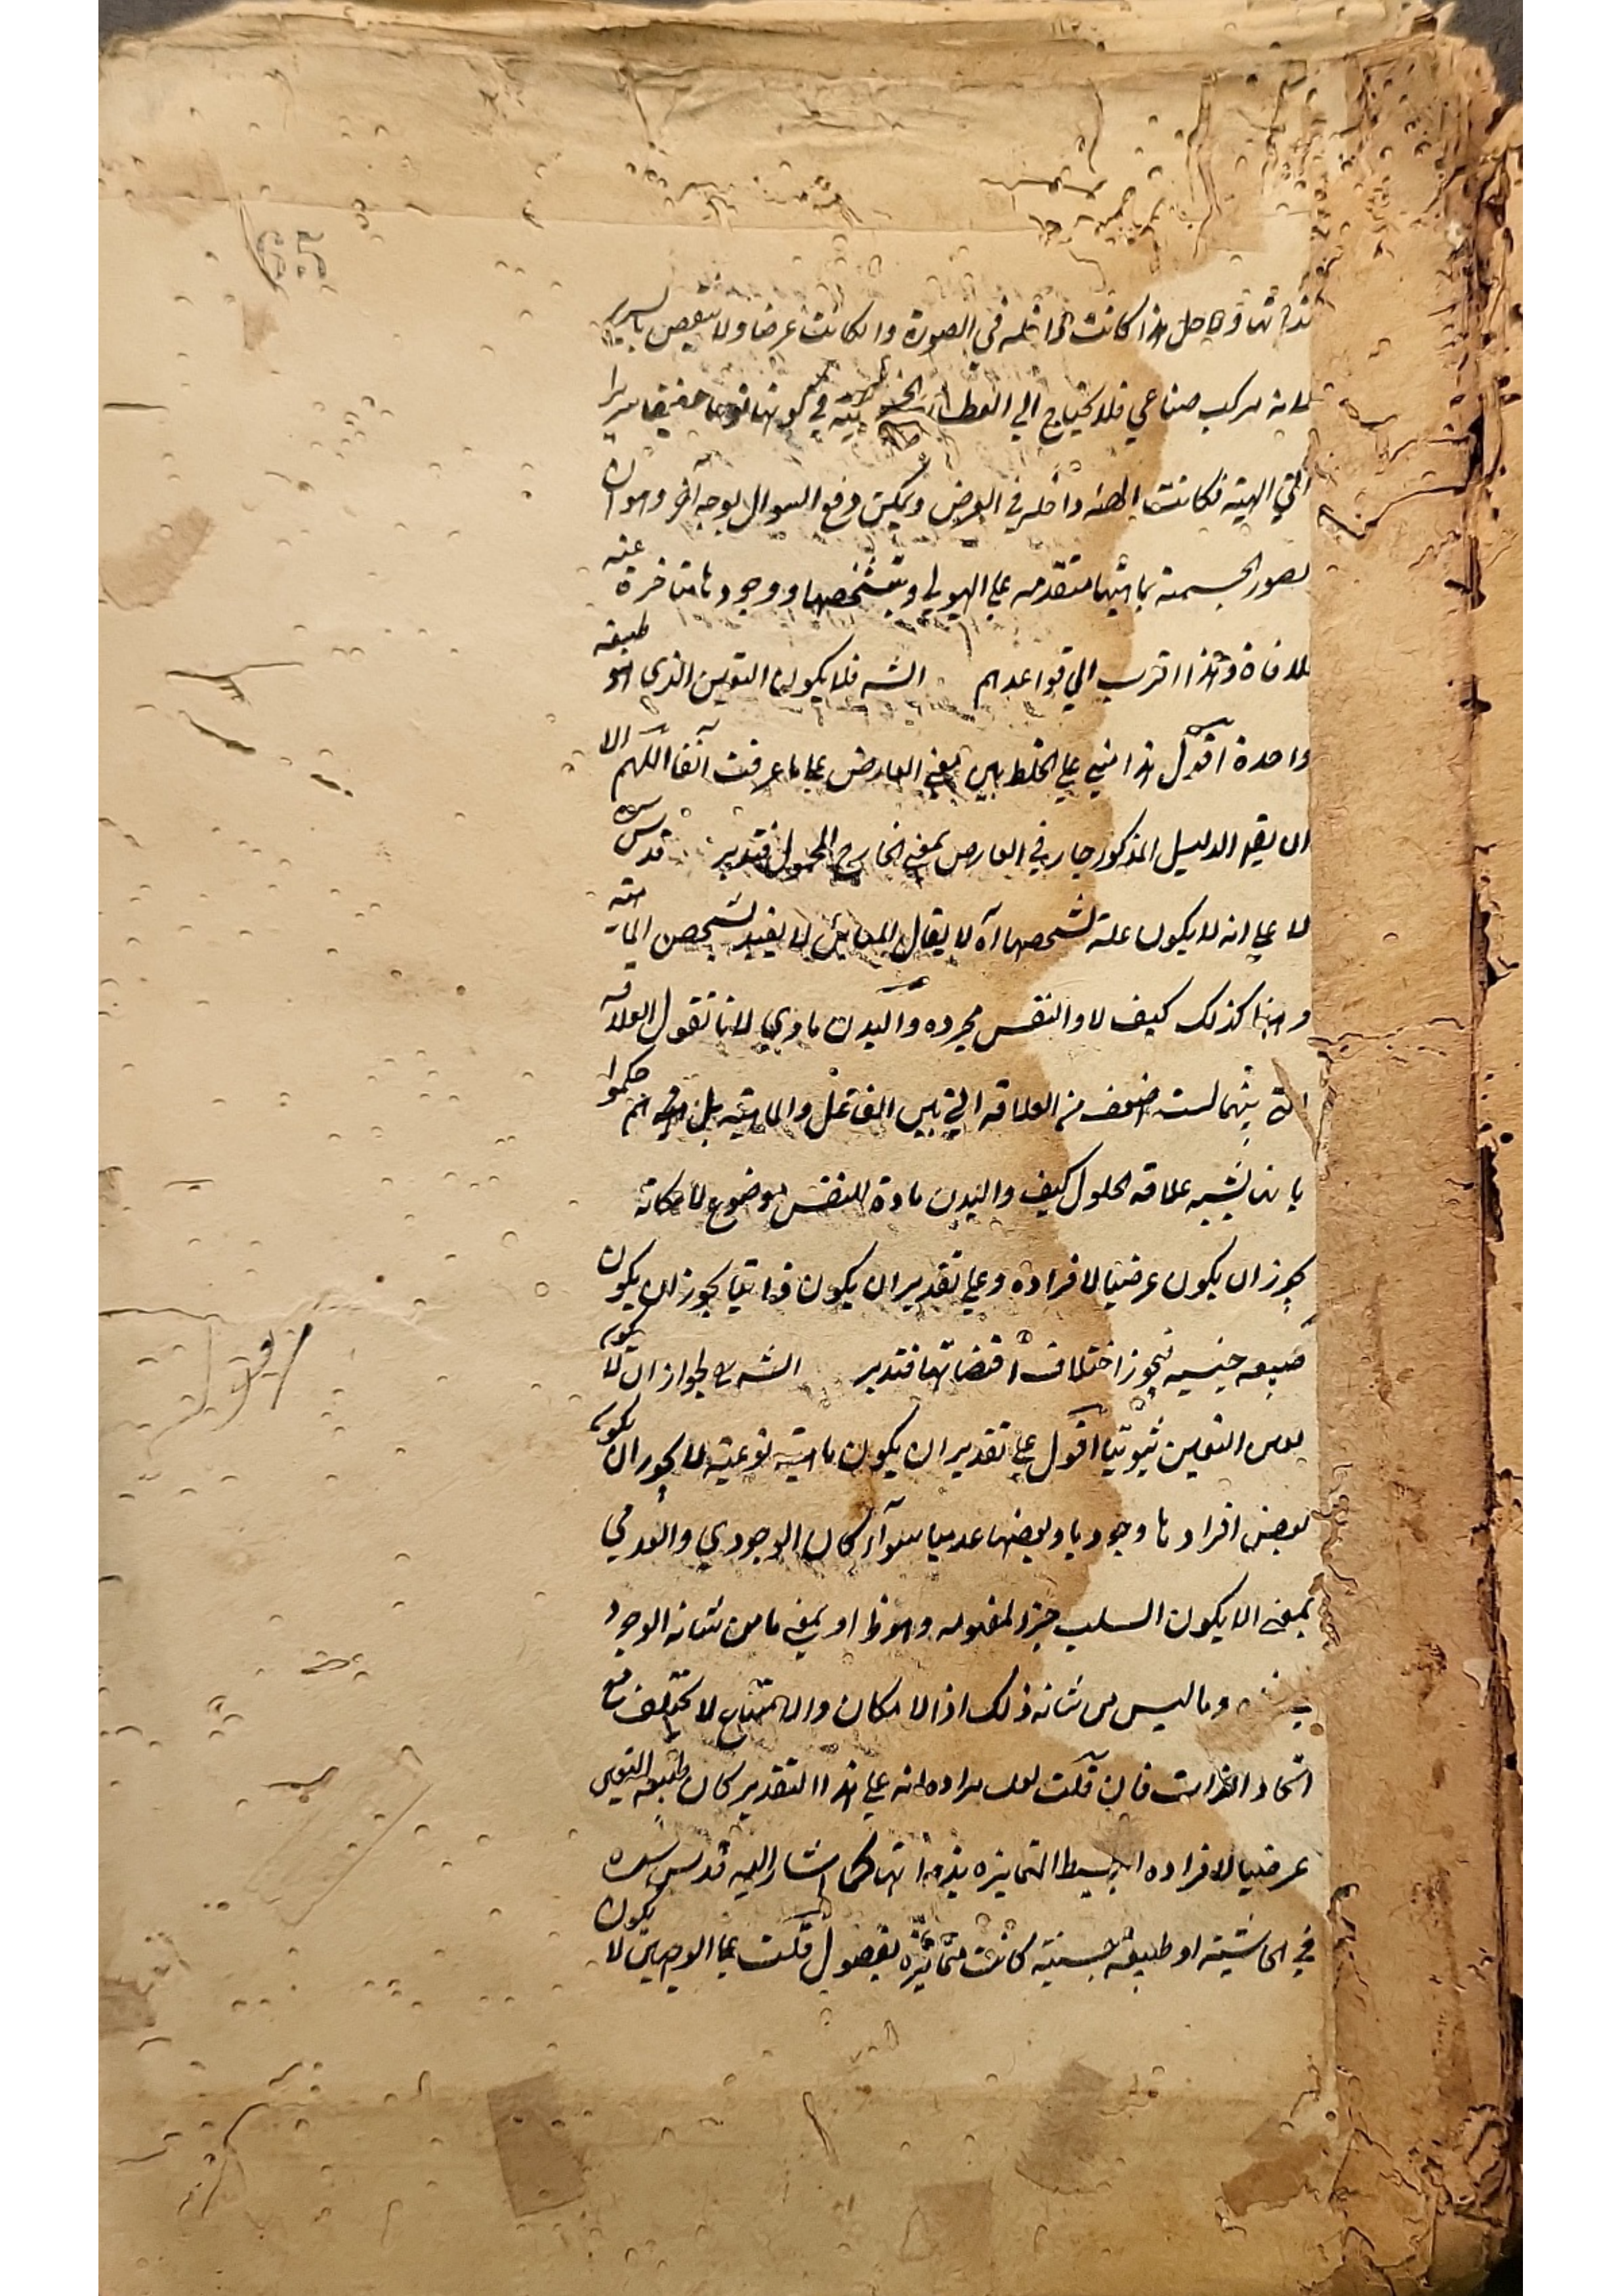 65
بذاتها وبما حل هذا كانت داخلة في الصورة والا كانت عرضا ولا ينقص بالسرير
لانه مركب صناعي فلا يحتاج الي القطاع الخشبية في كونها نوعا حقيقيا سريرا
الي الهيئة فكانت الهيئة داخلة في العرض ويمكن دفع السوال بوجه آخر وهو ان
لصور الجسمية بماهيتها متقدمة على الهيولي وبتشخصها ووجودها متاخرة عنه
فلا منافاة وهذا اقرب الي قواعدهم الشه فلا يكون التعين الذي هو طبيعة
واحدة اقول هذا مبني على الخلط بين معني العارض على ما عرفت آنفا اللهم الا
ان يقو الدليل المذكور جار في العارض بمعني الخارج المحمول فتدبر قدس سره
لا على انه لا يكون علة لتشخصها آه لا يقال المباين لا يفيد تشخص الماهية
وههنا كذلك كيف لا والنفس مجردة والبدن مادي لانا نقول العلاقة
التي بينهما ليست اضعف من العلاقة التي بين الفاعل والماهية بل انهم حكموا
بانها يشبه علاقة الحلول كيف والبدن مادة للنفس وموضوع لامكانه
يجوز ان يكون عرضيا لافراده وعلى تقدير ان يكون ذاتيا يجوز ان يكون
طبيعه جنسيه فيجوز اختلاف اقتضائها فتدبر الشه لجواز ان لا يكون
بعض التعين ثبوتيا اقول على تقدير ان يكون ماهية نوعية لا يجوز ان يكون
بعض افرادها وجوديا وبعضها عدميا سواء كان الوجودي والعدمي
بمعني ان لا يكون السلب جزء لمفهومه وهو ظ او بمعني ما من شانه الوجود
وما ليس من شانه ذلك اذ الامكان والامتناع لا يختلف مع
اتحاد الذات فان قلت لعل مراده انه على هذا التقدير كان طبيعة التعين
عرضيا لافراده البسيط المتمايزه بذواتها كما اشار اليه قدس سره
في الحاشية او طبيعة جنسية كانت متمايزة بفصول قلت على الوجهين لا يكون